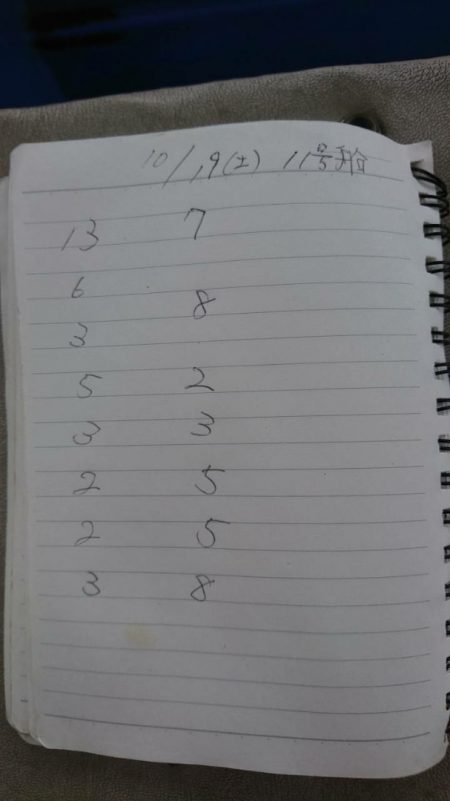 10/19(土) 11号艙
13 7
6 8
3
5 2
3 3
2 5
2 5
3 8